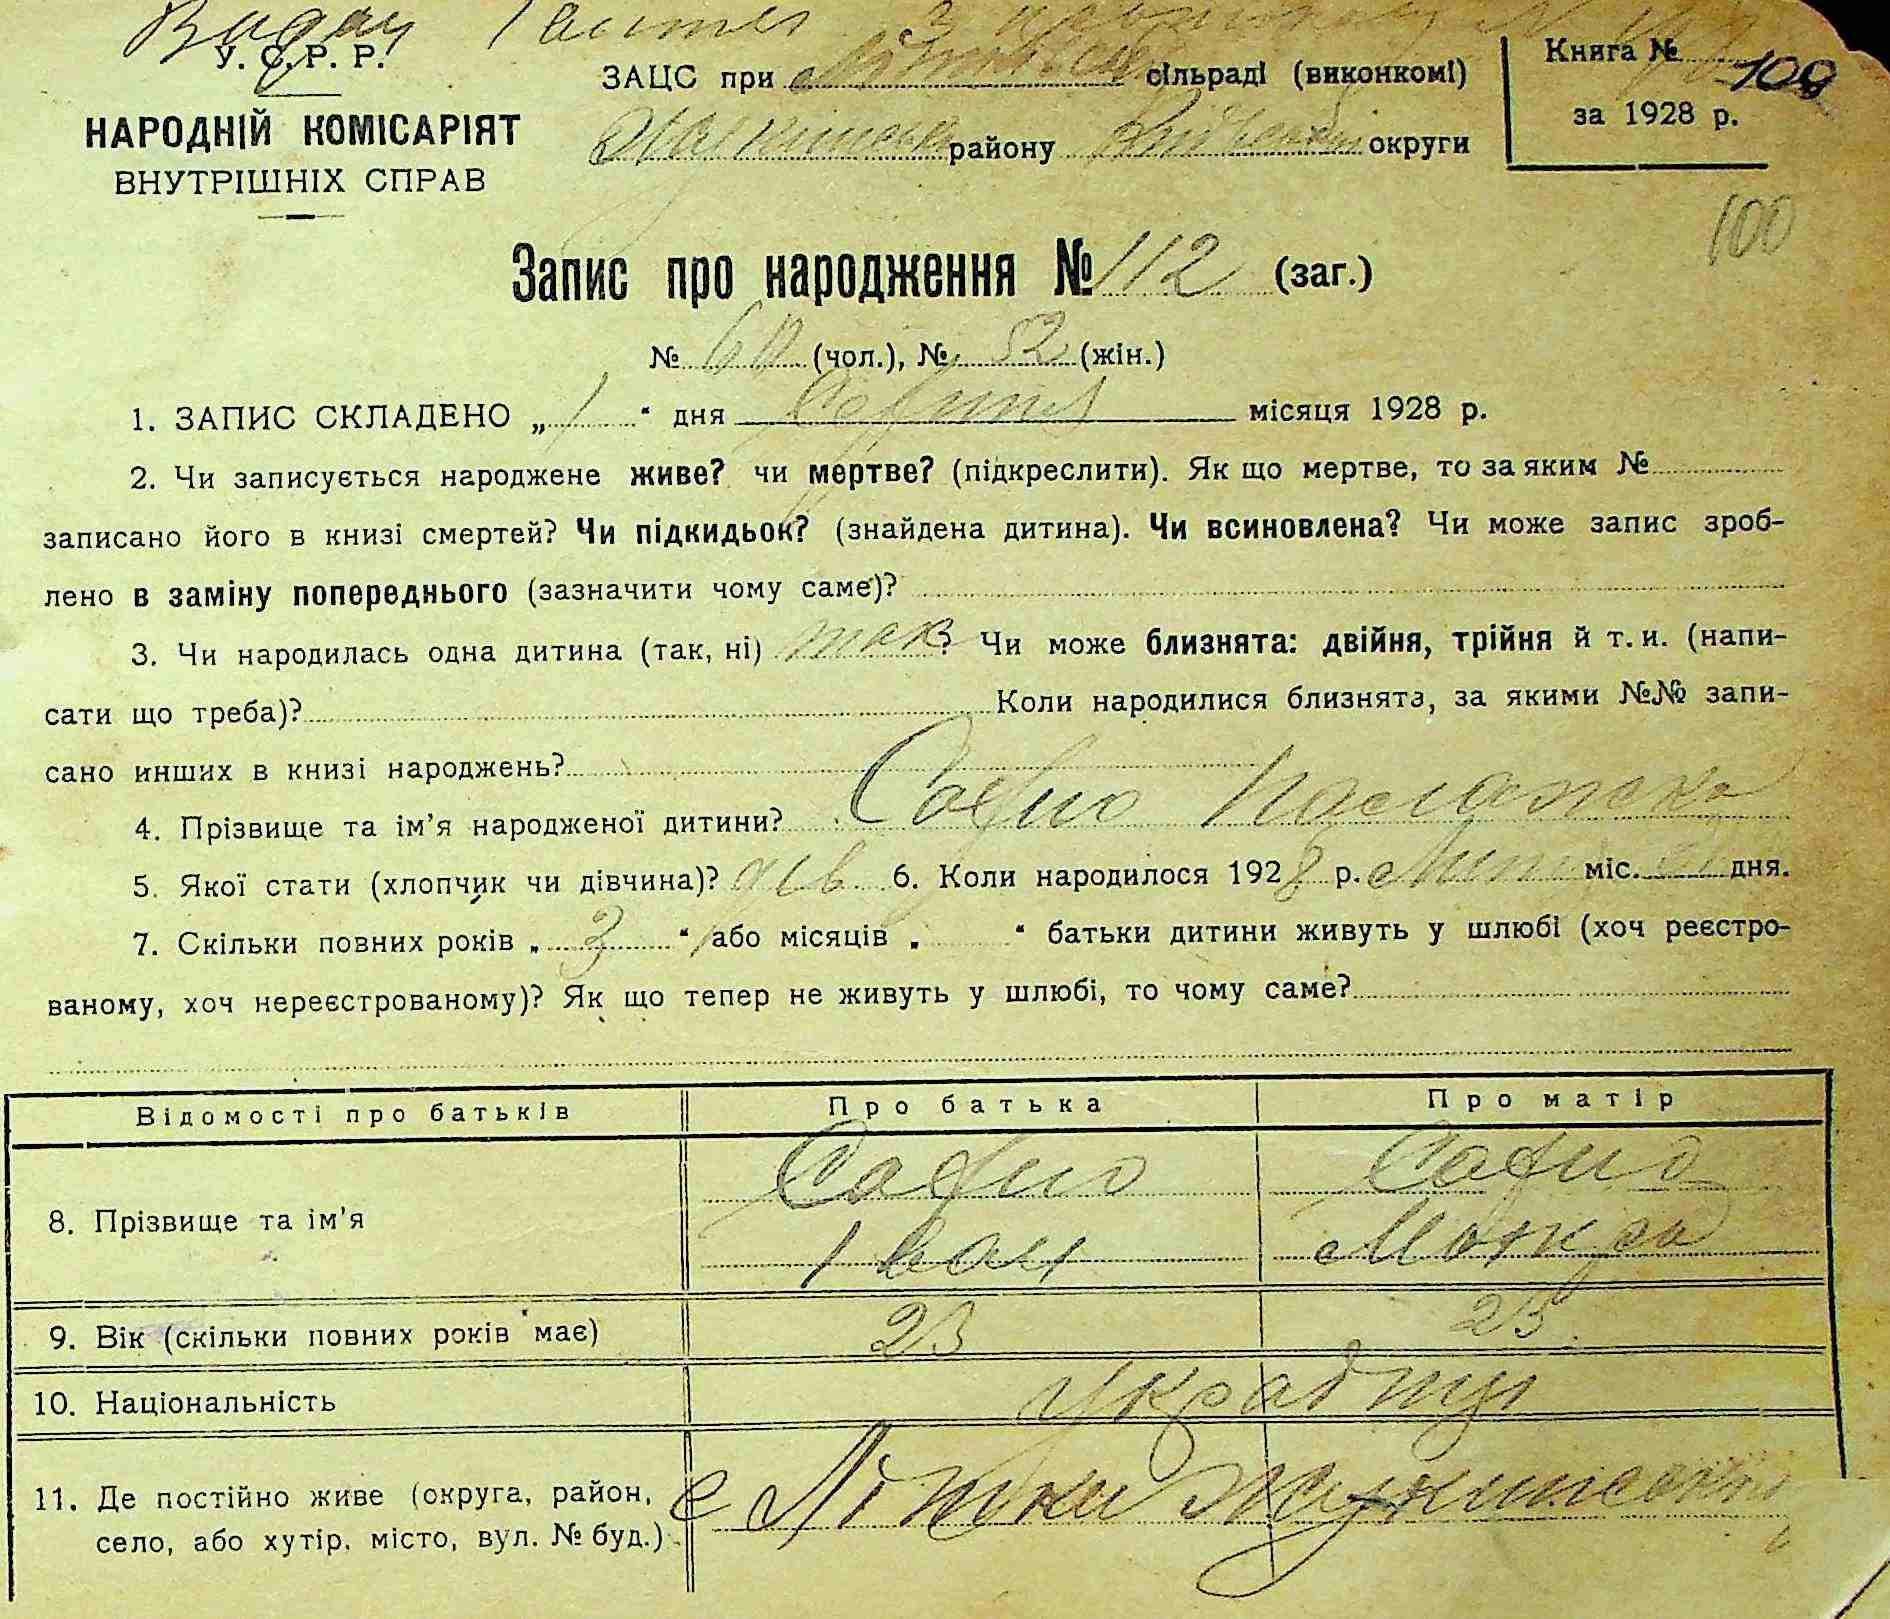 У. С. Р. Р.
НАРОДНІЙ КОМІСАРІЯТ
ВНУТРІШНІХ СПРАВ
ЗАЦС при сільраді (виконкомі)
району округи
Книга № 100
за 1928 р.
100
Запис про народження № 112 (заг.)
№ 60 (чол.), № 52 (жін.)
1. ЗАПИС СКЛАДЕНО „ 1 “ дня Серпня місяця 1928 р.
2. Чи записується народжене живе? чи мертве? (підкреслити). Як що мертве, то за яким №
записано його в книзі смертей? Чи підкидьок? (знайдена дитина). Чи всиновлена? Чи може запис зроб-
лено в заміну попереднього (зазначити чому саме)?
3. Чи народилась одна дитина (так, ні) так ? Чи може близнята: двійня, трійня й т. и. (напи-
сати що треба)? Коли народилися близнята, за якими №№ запи-
сано инших в книзі народжень?
4. Прізвище та ім’я народженої дитини?
5. Якої стати (хлопчик чи дівчина)? дів 6. Коли народилося 1928 р. міс. дня.
7. Скільки повних років „ 3 “ або місяців „ “ батьки дитини живуть у шлюбі (хоч реєстро-
ваному, хоч нереєстрованому)? Як що тепер не живуть у шлюбі, то чому саме?
Відомості про батьків Про батька Про матір
8. Прізвище та ім’я Іван
9. Вік (скільки повних років має) 23 23
10. Національність
11. Де постійно живе (округа, район, с Літки
село, або хутір, місто, вул. № буд.)